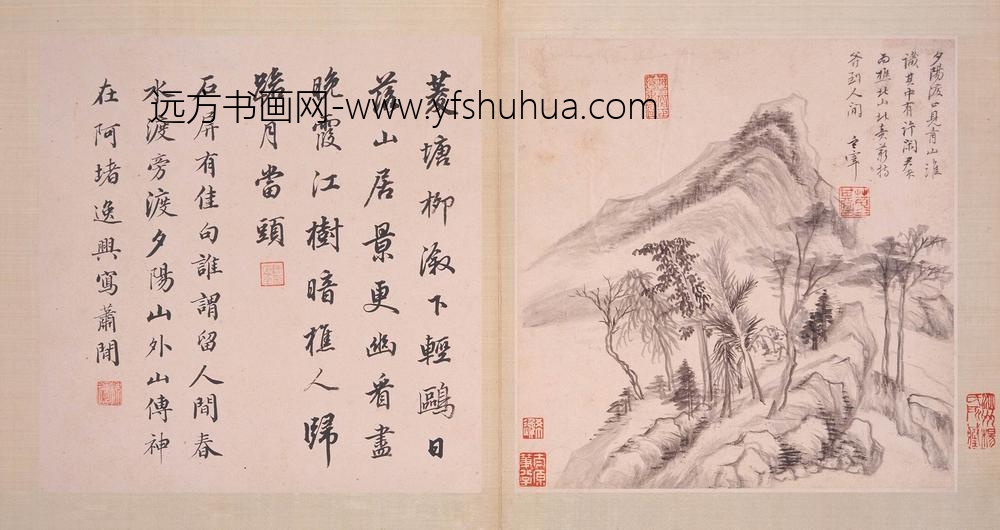 夕陽渡口見青山誰
識其中有許閑
樵北山北
斧到人間
菱塘柳漵下輕鷗日
落山居景更幽看盡
晚霞江樹暗樵人歸
路月當頭
石屏有佳句誰謂留人間春
水渡旁渡夕陽山外山傳神
在阿堵逸興寫蕭閒
远方书画网-www.yfshuhua.com